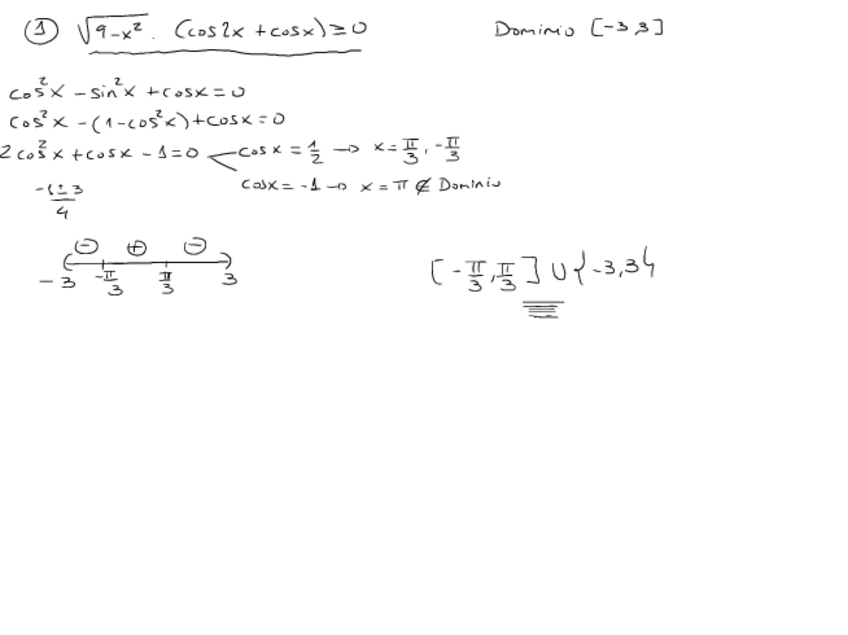 ① √(9-x²) · (cos2x + cosx) ≥ 0 Dominio [-3,3]
cos²x - sin²x + cosx = 0
cos²x - (1-cos²x) + cosx = 0
2cos²x + cosx - 1 = 0 cosx = 1/2 → x = π/3, -π/3
cosx = -1 → x = π ∉ Dominio
(-1±3)/4
⊖ ⊕ ⊖
-3 -π/3 π/3 3
[-π/3, π/3] ∪ {-3,3}